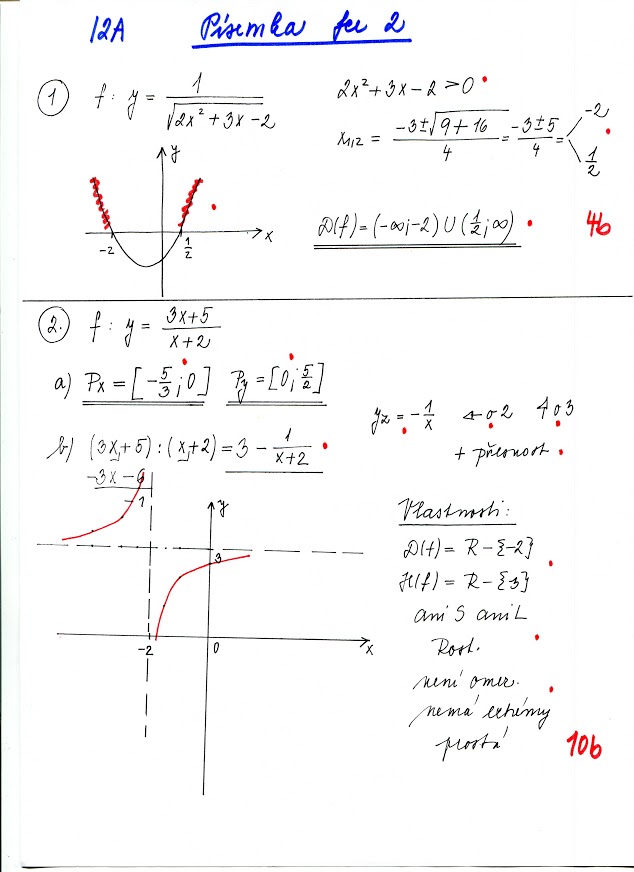 12A Písemka fce 2
① f: y = 1/√(2x² + 3x - 2)
2x² + 3x - 2 > 0
x₁,₂ = (-3 ± √(9 + 16))/4 = (-3 ± 5)/4 = -2
1/2
y
-2 1/2 x
D(f) = (-∞; -2) ∪ (1/2; ∞) 4b
②. f: y = (3x+5)/(x+2)
a) Px = [-5/3; 0] Py = [0; 5/2]
yz = -1/x ← o 2 ↑ o 3
+ přesnost
b) (3x+5) : (x+2) = 3 - 1/(x+2)
-3x - 6
-1
y
3
-2 0 x
Vlastnosti:
D(f) = R - {-2}
H(f) = R - {3}
ani S ani L
Rost.
není omez.
nemá extrémy
prostá 10b